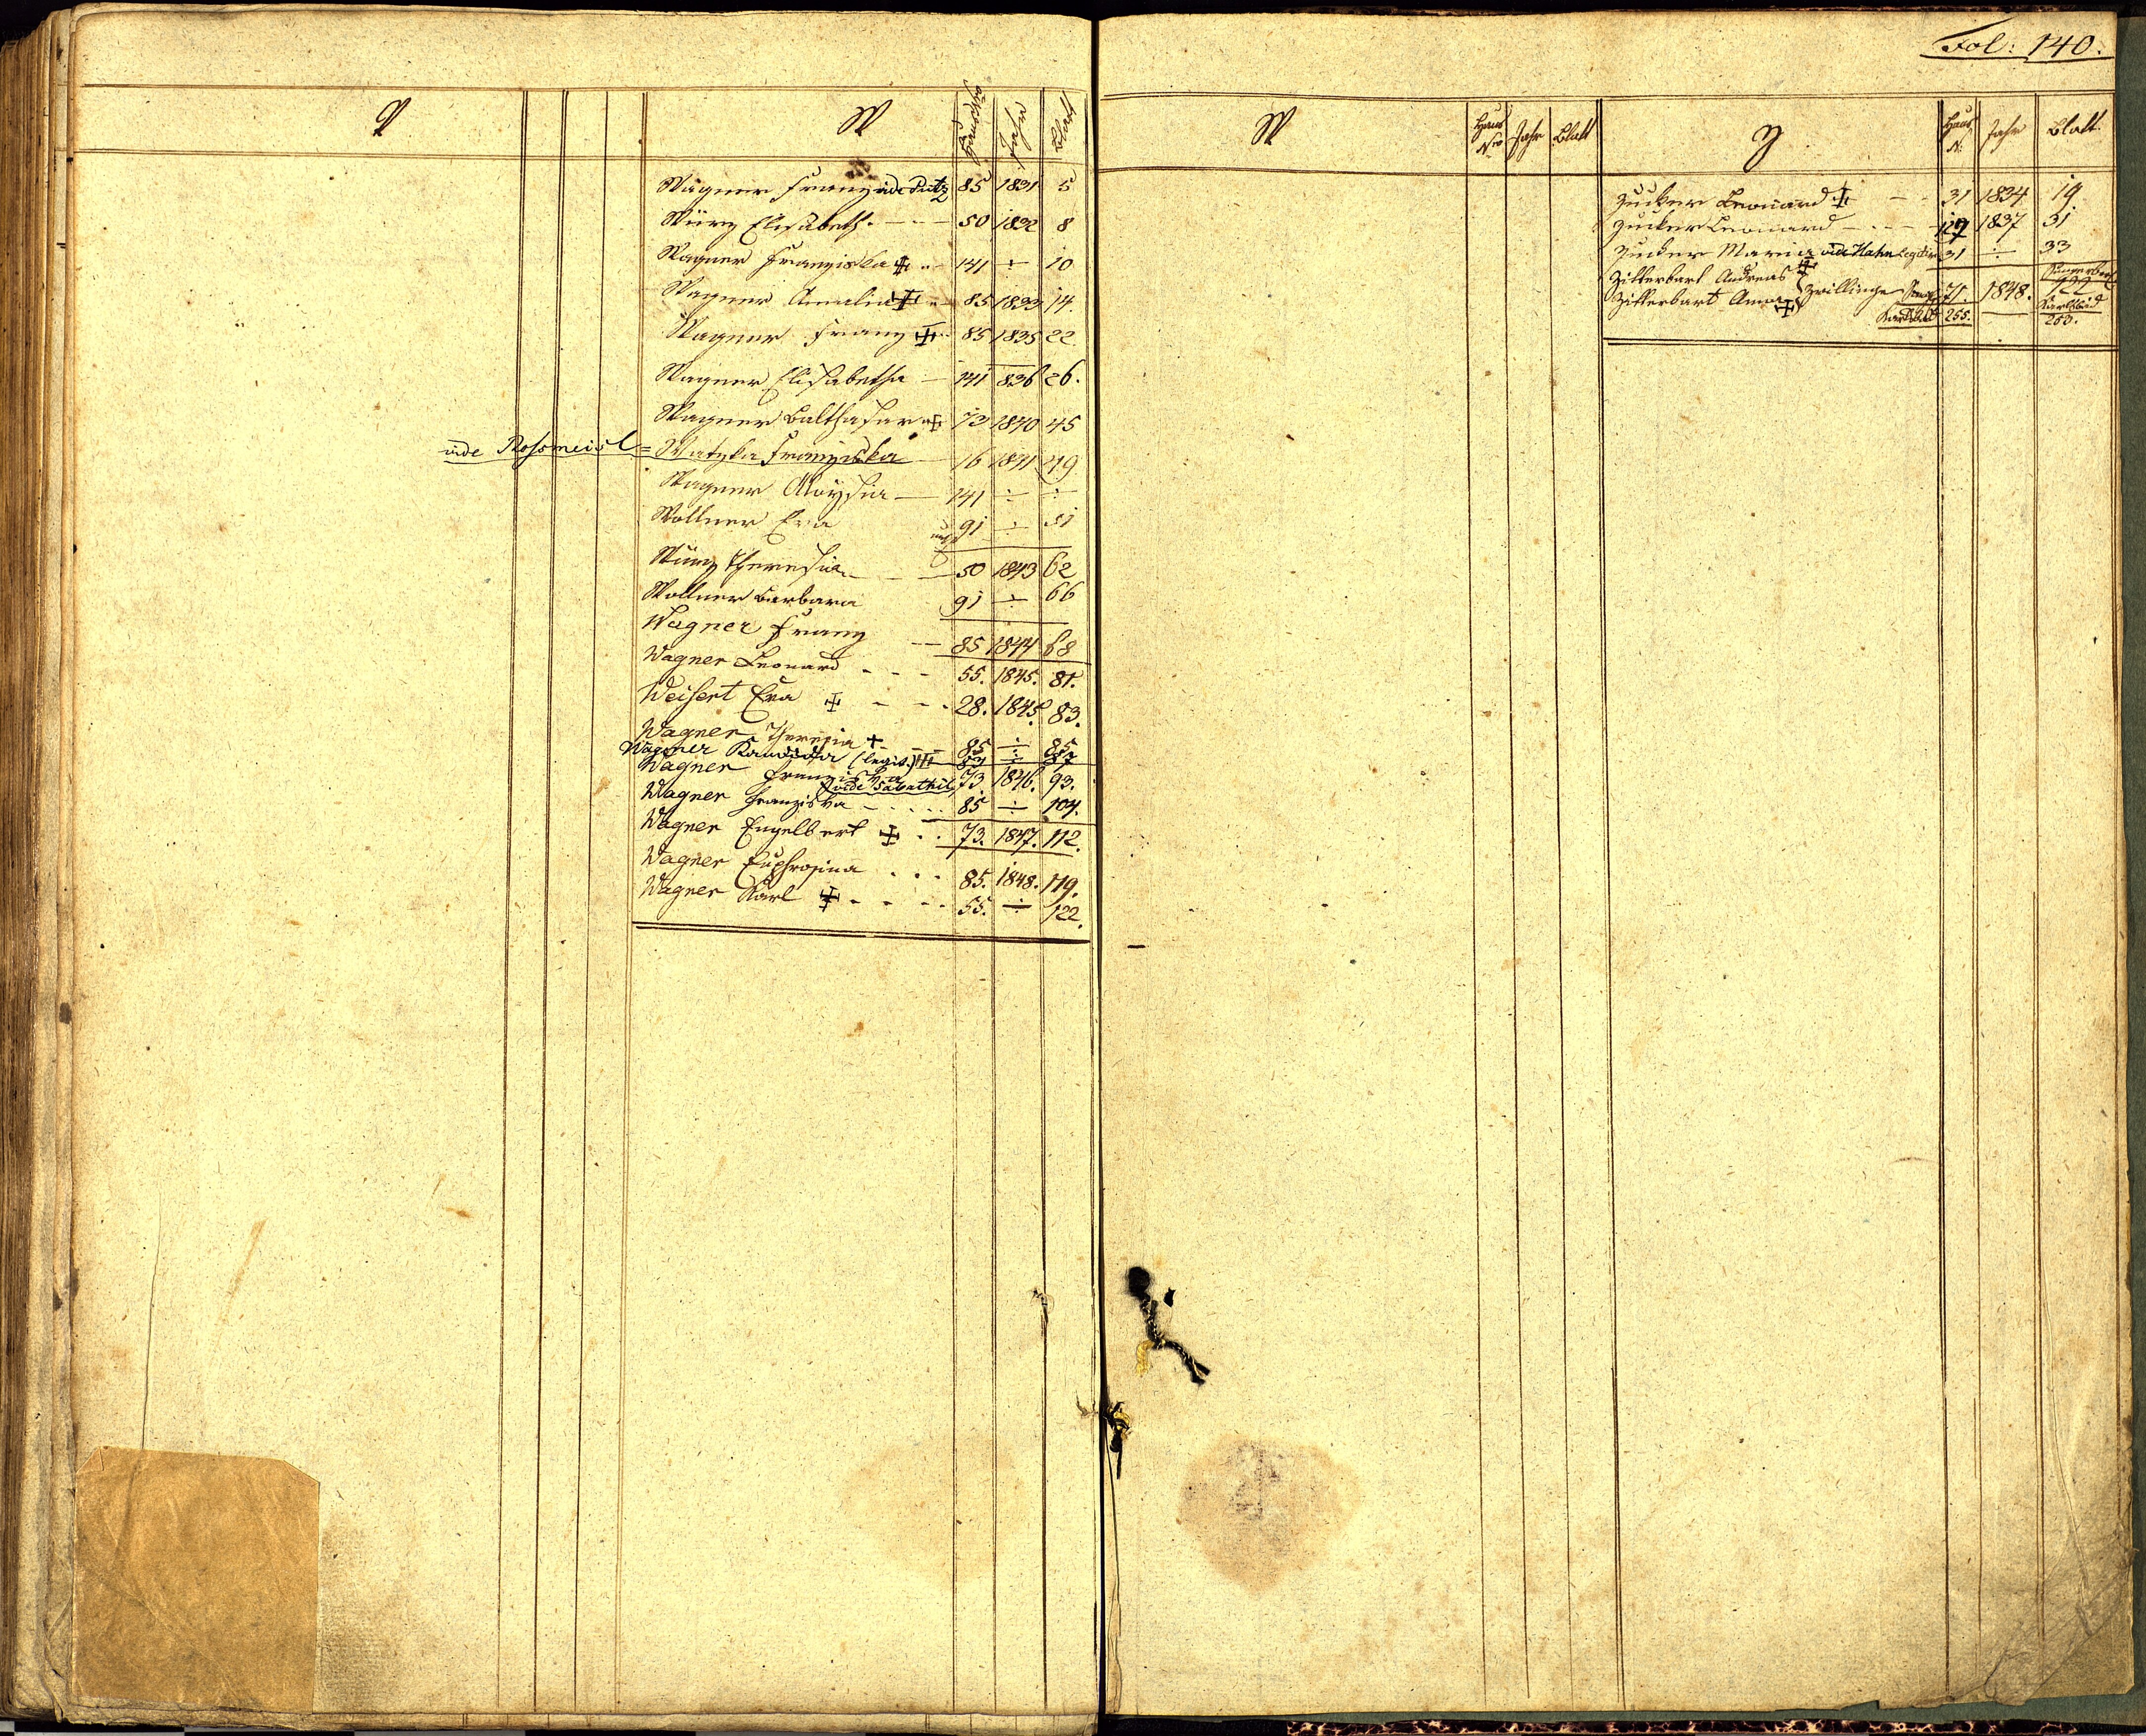 Fol: 140.
V
W Hausnro Jahr Blatt
Wagner Franz vide Putz 85 1831 5
Würz Elisabeth. 50 1832 8
Wagner Franziska ‡ 141 ÷ 10
Wagner Amalia ‡ 85 1833 14.
Wagner Franz ‡ 85 1835 22
Wagner Elisabetha 141 836 26.
Wagner Balthasar ‡ 73 1840 45
vide Rossmeisl = Watzka Franziska 16 1841 49
Wagner Aloysia 141 ÷ ÷
Wollner Eva 91 ÷ 51
Würz Theresia 50 1843 62
Wollner Barbara 91 ÷ 66
Wagner Franz 85 1844 68
Wagner Leonard 55. 1845. 81.
Weisert Eva ‡ 28. 1845. 83.
Wagner Theresia + 85 ÷ 85
Wagner Kandida (legit.) ÷ 87
Wagner Franziska 73 1846. 93.
vide Sabathil
Wagner Franziska 85 ÷ 104.
Wagner Engelbert ‡ 73. 1847. 112.
Wagner Euphrosina 85. 1848. 119.
Wagner Karl ‡ 55. ÷ 122.
W Haus Nro Jahr Blatt
Z Haus N. Jahr Blatt.
Zucker Leonard ‡ 31 1834 19.
Zucker Leonard 1837 31
Zucker Maria vide Hahn 31 ÷ 33
Zitterbart Andreas ‡
Zitterbart Anna ‡ Zwillinge 71. 1848.
Karlsbad 255. Karlsbad
253.